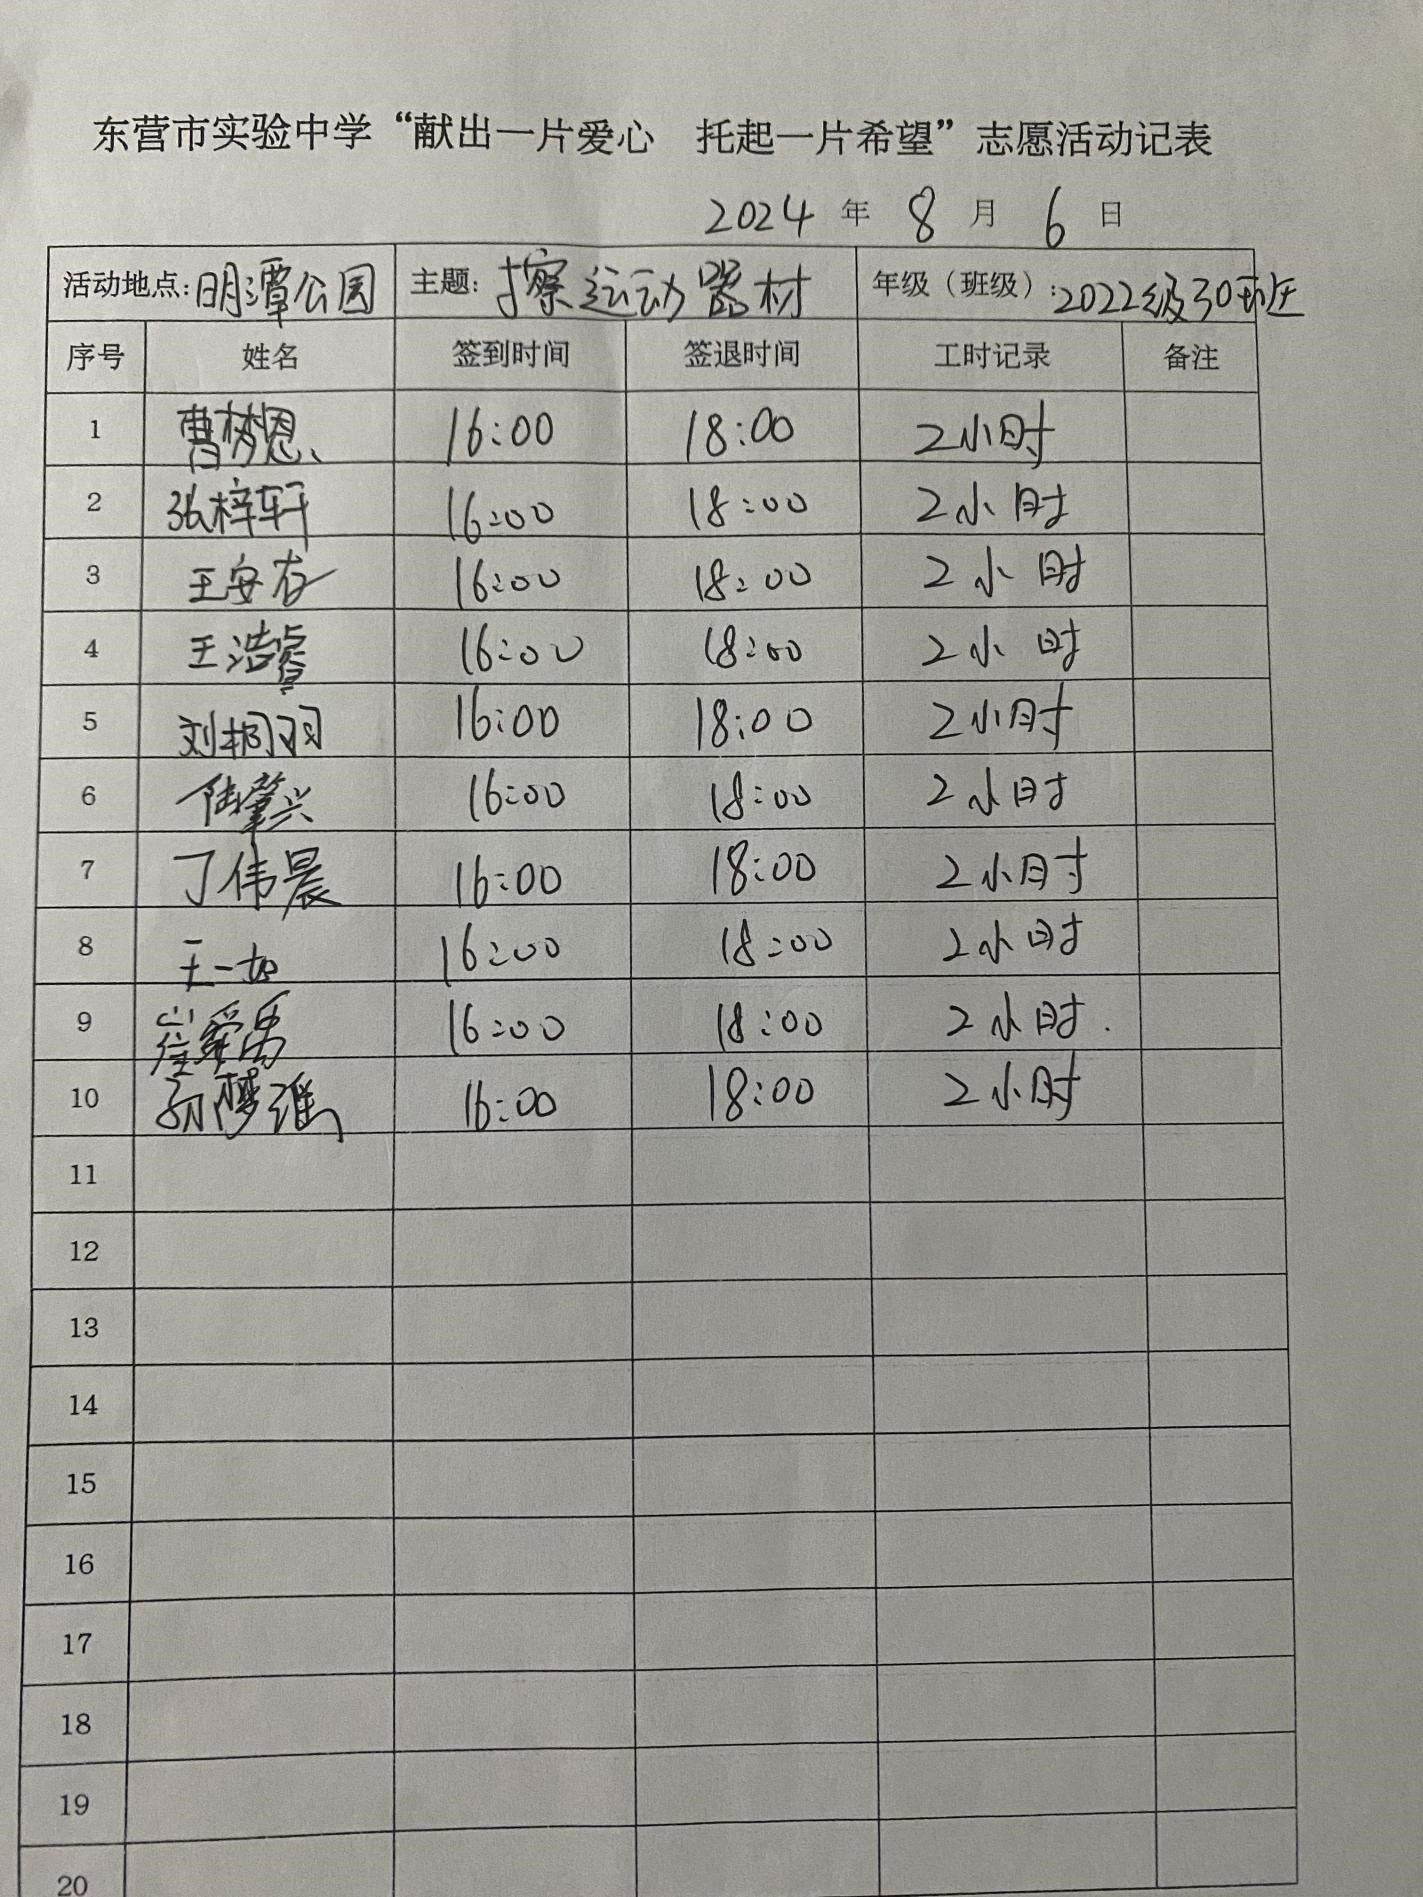 东营市实验中学“献出一片爱心 托起一片希望”志愿活动记表
2024 年 8 月 6 日
活动地点: 明潭公园 主题: 擦运动器材 年级（班级）: 2022级30班
序号 姓名 签到时间 签退时间 工时记录 备注
1 曹梦恩 16:00 18:00 2小时
2 张梓轩 16:00 18:00 2小时
3 王安存 16:00 18:00 2小时
4 王浩睿 16:00 18:00 2小时
5 刘桐羽 16:00 18:00 2小时
6 陆肇兴 16:00 18:00 2小时
7 丁伟晨 16:00 18:00 2小时
8 王一如 16:00 18:00 2小时
9 崔舜禹 16:00 18:00 2小时.
10 孙梦 16:00 18:00 2小时
11
12
13
14
15
16
17
18
19
20